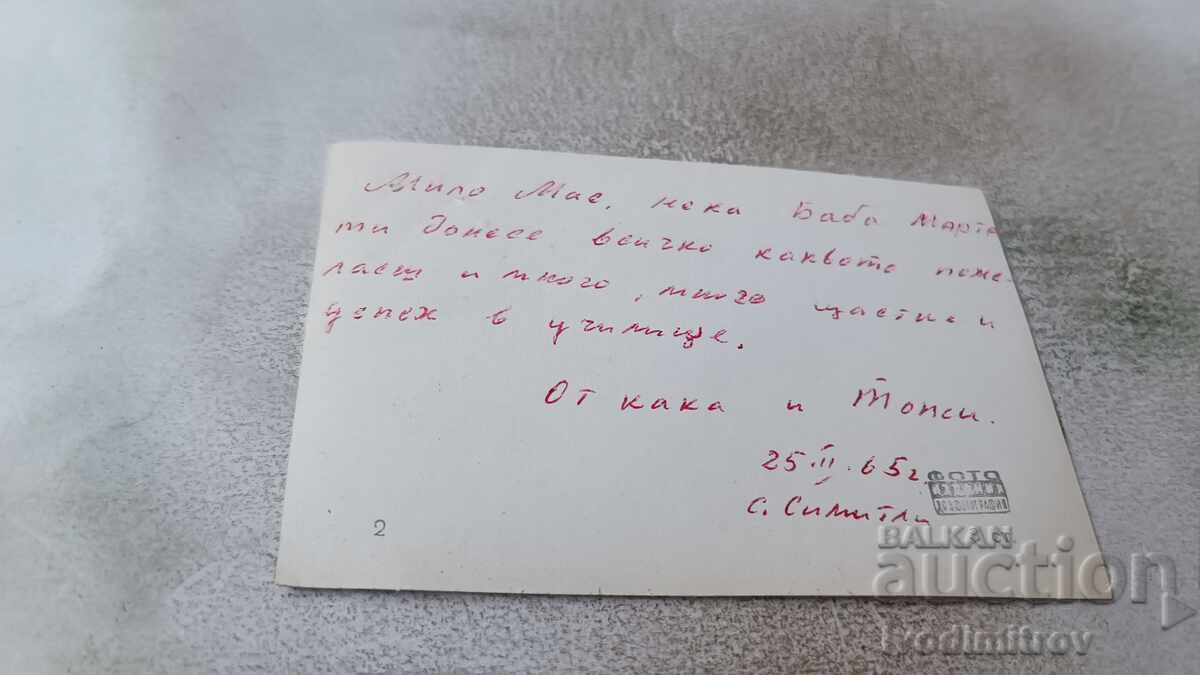 Мило Мае, нека Баба Марта
ти донесе всичко каквото поже-
лаеш и много, много щастие и
успех в училище.
От кака и Тонси.
25 II 65 г.
с. Симитли
ФОТО
2
BALKAN
auction
ivodimitrov